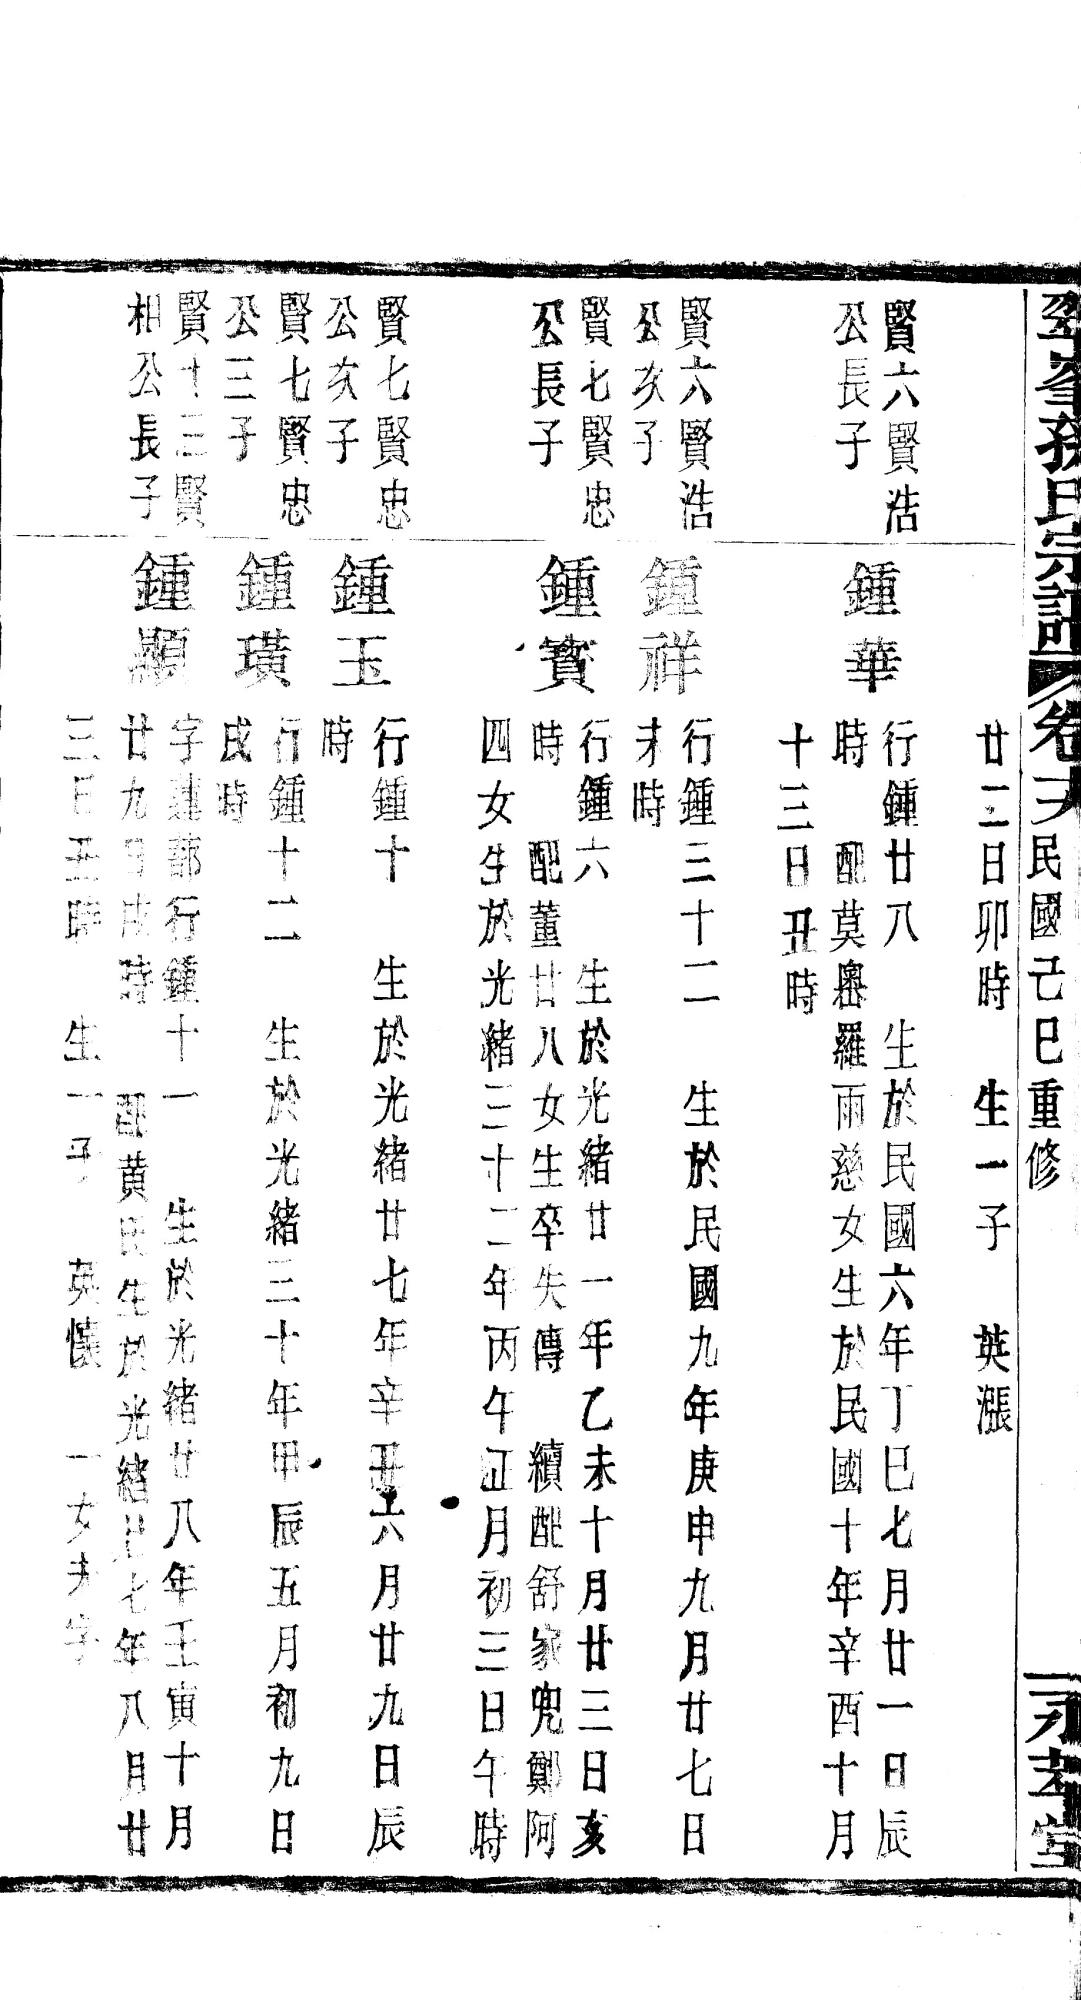 孫氏宗譜 卷 民國己巳重修 永孝堂
廿二日卯時 生一子 英漲
賢六賢浩
公長子
鍾華
行鍾廿八 生於民國六年丁巳七月廿一日辰
時 配莫嶴羅雨慈女生於民國十年辛酉十月
十三日丑時
賢六賢浩
公次子
鍾祥
行鍾三十二 生於民國九年庚申九月廿七日
未時
賢七賢忠
公長子
鍾寶
行鍾六 生於光緒廿一年乙未十月廿三日亥
時 配董廿八女生卒失傳 續配舒家兜鄭阿
四女生於光緒三十二年丙午正月初三日午時
賢七賢忠
公次子
鍾玉
行鍾十 生於光緒廿七年辛丑六月廿九日辰
時
賢七賢忠
公三子
鍾璜
行鍾十二 生於光緒三十年甲辰五月初九日
戌時
賢十三賢
相公長子
鍾顯
字蓮郁行鍾十一 生於光緒廿八年壬寅十月
廿九日戌時 配黃氏生於光緒廿七年八月廿
三日丑時 生一子 英懷 一女未字